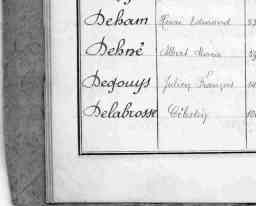 Deham Henri Edmond
Dehné Albert Marie
Degouys Julien François
Delabrosse Célestin